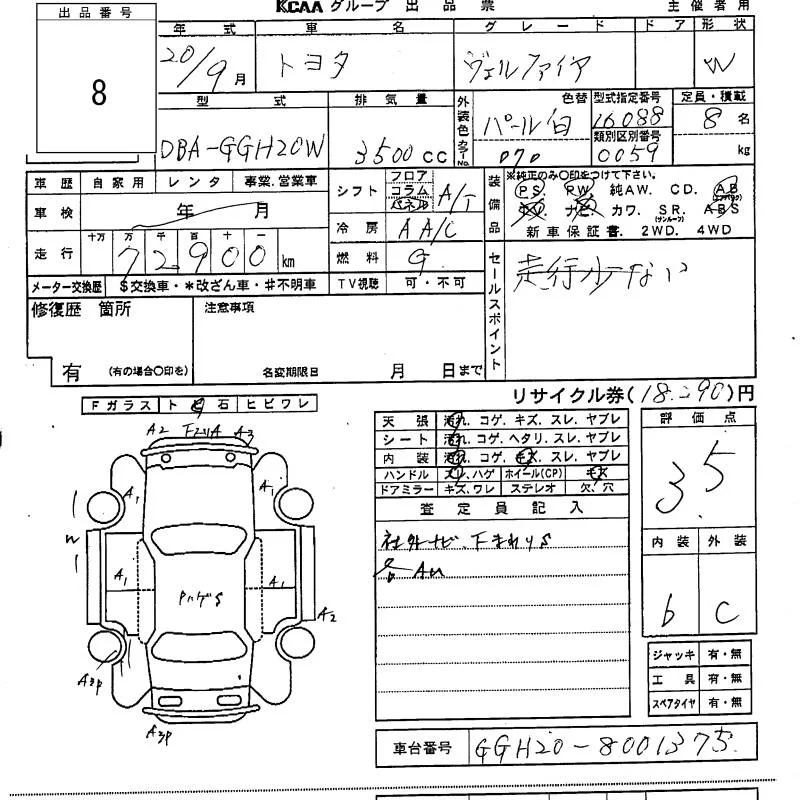 KCAA グループ 出品票
主催者用
出品番号
8
年式 車名 グレード ドア 形状
20/9月 トヨタ ヴェルファイア W
型式 排気量 外装色 色替 カラーNo. 型式指定番号 定員・積載
DBA-GGH20W 3500cc パール白 070 16088 8名
類別区別番号
0059 kg
車歴 自家用 レンタ 事業.営業車
車検 年 月
走行 十万 万 千 百 十 一
72900km
メーター交換歴 $交換車・*改ざん車・#不明車
シフト フロア コラム パネル A/T
冷房 AA/C
燃料 G
TV視聴 可・不可
装備品 ※純正のみ○印をつけて下さい。
PS. PW. 純AW. CD. AB (エアバック)
ナビ. カワ. SR. (サンルーフ) ABS
新車保証書. 2WD. 4WD
セールスポイント
走行少ない
修復歴 箇所
有 (有の場合○印を)
注意事項
名変期限日 月 日まで
リサイクル券(18290)円
Fガラス ト 石 ヒビワレ
A2 A3
A1 A1
A1 A1
A2
A3P
天張 汚れ、コゲ、キズ、スレ、ヤブレ
シート 汚れ、コゲ、ヘタリ、スレ、ヤブレ
内装 汚れ、コゲ、キズ、スレ、ヤブレ
ハンドル スレ、ハゲ ホイール(CP) キズ
ドアミラー キズ、ワレ ステレオ 欠、穴
査定員記入
社外ナビ. 下まわりS
評価点
3.5
内装 外装
b C
ジャッキ 有・無
工具 有・無
スペアタイヤ 有・無
車台番号 GGH20-8001375